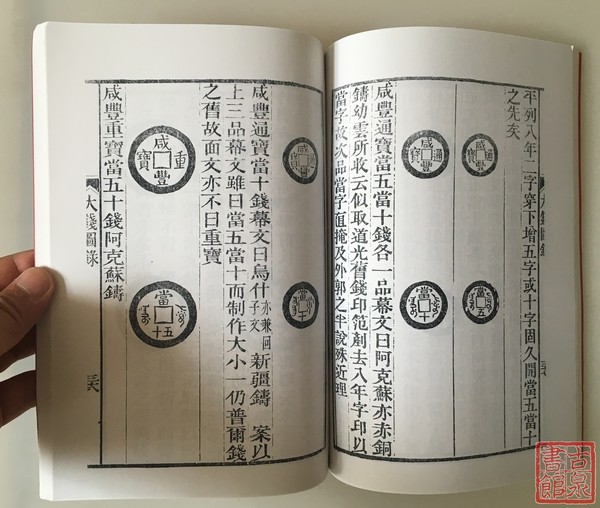 年列八年二字穿下增五字或十字固久開當五當十
之先矣
通咸寶豐
通咸寶豐
五
當十
咸豐通寶當五當十錢各一品幕文曰阿克蘇亦赤銅
鑄幼雲所收云似取道光舊錢印笵剷去八年字印以
當字故次品當字直掩及外郭之半說殊近理
大錢圖錄
咸豐通寶
十
咸豐通寶當十錢幕文曰烏什亦兼回子文新疆鑄 案以
上三品幕文雖曰當五當十而制作大小一仍普爾錢
之舊故面文亦不曰重寶
咸豐重寶
當五十
咸豐重寶當五十錢阿克蘇鑄
大錢圖錄
古泉書館